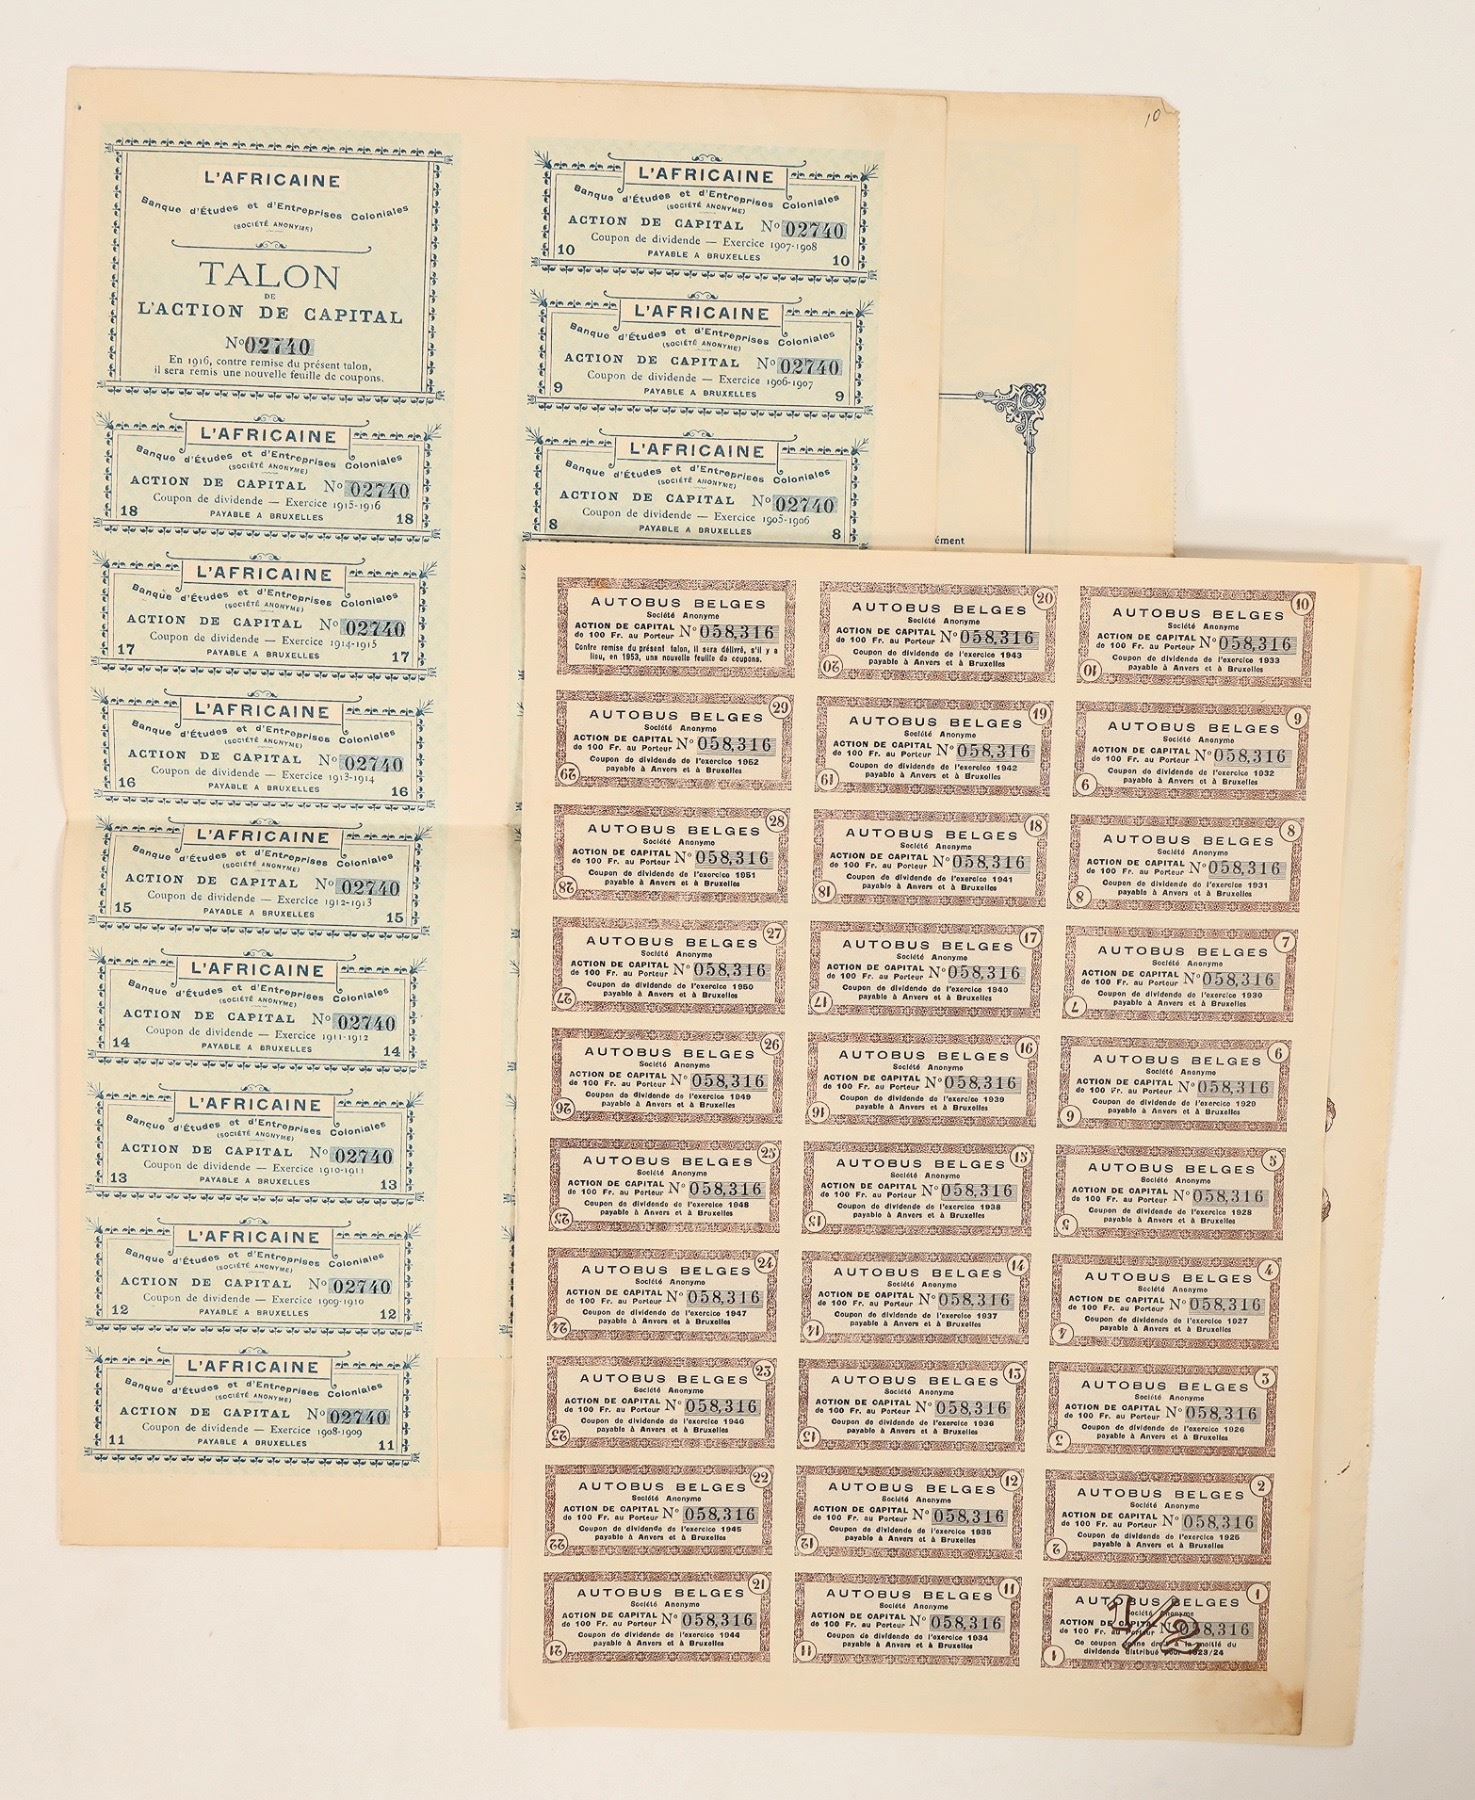 10
L'AFRICAINE
Banque d'Études et d'Entreprises Coloniales
(SOCIÉTÉ ANONYME)
TALON
DE
L'ACTION DE CAPITAL
No 02740
En 1916, contre remise du présent talon,
il sera remis une nouvelle feuille de coupons.
L'AFRICAINE
Banque d'Études et d'Entreprises Coloniales
(SOCIÉTÉ ANONYME)
ACTION DE CAPITAL No 02740
Coupon de dividende — Exercice 1915-1916
18 PAYABLE A BRUXELLES 18
L'AFRICAINE
Banque d'Études et d'Entreprises Coloniales
(SOCIÉTÉ ANONYME)
ACTION DE CAPITAL No 02740
Coupon de dividende — Exercice 1914-1915
17 PAYABLE A BRUXELLES 17
L'AFRICAINE
Banque d'Études et d'Entreprises Coloniales
(SOCIÉTÉ ANONYME)
ACTION DE CAPITAL No 02740
Coupon de dividende — Exercice 1913-1914
16 PAYABLE A BRUXELLES 16
L'AFRICAINE
Banque d'Études et d'Entreprises Coloniales
(SOCIÉTÉ ANONYME)
ACTION DE CAPITAL No 02740
Coupon de dividende — Exercice 1912-1913
15 PAYABLE A BRUXELLES 15
L'AFRICAINE
Banque d'Études et d'Entreprises Coloniales
(SOCIÉTÉ ANONYME)
ACTION DE CAPITAL No 02740
Coupon de dividende — Exercice 1911-1912
14 PAYABLE A BRUXELLES 14
L'AFRICAINE
Banque d'Études et d'Entreprises Coloniales
(SOCIÉTÉ ANONYME)
ACTION DE CAPITAL No 02740
Coupon de dividende — Exercice 1910-1911
13 PAYABLE A BRUXELLES 13
L'AFRICAINE
Banque d'Études et d'Entreprises Coloniales
(SOCIÉTÉ ANONYME)
ACTION DE CAPITAL No 02740
Coupon de dividende — Exercice 1909-1910
12 PAYABLE A BRUXELLES 12
L'AFRICAINE
Banque d'Études et d'Entreprises Coloniales
(SOCIÉTÉ ANONYME)
ACTION DE CAPITAL No 02740
Coupon de dividende — Exercice 1908-1909
11 PAYABLE A BRUXELLES 11
L'AFRICAINE
Banque d'Études et d'Entreprises Coloniales
(SOCIÉTÉ ANONYME)
ACTION DE CAPITAL No 02740
Coupon de dividende — Exercice 1907-1908
10 PAYABLE A BRUXELLES 10
L'AFRICAINE
Banque d'Études et d'Entreprises Coloniales
(SOCIÉTÉ ANONYME)
ACTION DE CAPITAL No 02740
Coupon de dividende — Exercice 1906-1907
9 PAYABLE A BRUXELLES 9
L'AFRICAINE
Banque d'Études et d'Entreprises Coloniales
(SOCIÉTÉ ANONYME)
ACTION DE CAPITAL No 02740
Coupon de dividende — Exercice 1905-1906
8 PAYABLE A BRUXELLES 8
ément
AUTOBUS BELGES
Société Anonyme
ACTION DE CAPITAL
de 100 Fr. au Porteur No 058,316
Contre remise du présent talon, il sera délivré, s'il y a
lieu, en 1953, une nouvelle feuille de coupons.
29
AUTOBUS BELGES
Société Anonyme
ACTION DE CAPITAL
de 100 Fr. au Porteur No 058,316
Coupon de dividende de l'exercice 1952
payable à Anvers et à Bruxelles
29
28
AUTOBUS BELGES
Société Anonyme
ACTION DE CAPITAL
de 100 Fr. au Porteur No 058,316
Coupon de dividende de l'exercice 1951
payable à Anvers et à Bruxelles
28
27
AUTOBUS BELGES
Société Anonyme
ACTION DE CAPITAL
de 100 Fr. au Porteur No 058,316
Coupon de dividende de l'exercice 1950
payable à Anvers et à Bruxelles
27
26
AUTOBUS BELGES
Société Anonyme
ACTION DE CAPITAL
de 100 Fr. au Porteur No 058,316
Coupon de dividende de l'exercice 1949
payable à Anvers et à Bruxelles
26
25
AUTOBUS BELGES
Société Anonyme
ACTION DE CAPITAL
de 100 Fr. au Porteur No 058,316
Coupon de dividende de l'exercice 1948
payable à Anvers et à Bruxelles
25
24
AUTOBUS BELGES
Société Anonyme
ACTION DE CAPITAL
de 100 Fr. au Porteur No 058,316
Coupon de dividende de l'exercice 1947
payable à Anvers et à Bruxelles
24
23
AUTOBUS BELGES
Société Anonyme
ACTION DE CAPITAL
de 100 Fr. au Porteur No 058,316
Coupon de dividende de l'exercice 1946
payable à Anvers et à Bruxelles
23
22
AUTOBUS BELGES
Société Anonyme
ACTION DE CAPITAL
de 100 Fr. au Porteur No 058,316
Coupon de dividende de l'exercice 1945
payable à Anvers et à Bruxelles
22
21
AUTOBUS BELGES
Société Anonyme
ACTION DE CAPITAL
de 100 Fr. au Porteur No 058,316
Coupon de dividende de l'exercice 1944
payable à Anvers et à Bruxelles
21
20
AUTOBUS BELGES
Société Anonyme
ACTION DE CAPITAL
de 100 Fr. au Porteur No 058,316
Coupon de dividende de l'exercice 1943
payable à Anvers et à Bruxelles
20
19
AUTOBUS BELGES
Société Anonyme
ACTION DE CAPITAL
de 100 Fr. au Porteur No 058,316
Coupon de dividende de l'exercice 1942
payable à Anvers et à Bruxelles
19
18
AUTOBUS BELGES
Société Anonyme
ACTION DE CAPITAL
de 100 Fr. au Porteur No 058,316
Coupon de dividende de l'exercice 1941
payable à Anvers et à Bruxelles
18
17
AUTOBUS BELGES
Société Anonyme
ACTION DE CAPITAL
de 100 Fr. au Porteur No 058,316
Coupon de dividende de l'exercice 1940
payable à Anvers et à Bruxelles
17
16
AUTOBUS BELGES
Société Anonyme
ACTION DE CAPITAL
de 100 Fr. au Porteur No 058,316
Coupon de dividende de l'exercice 1939
payable à Anvers et à Bruxelles
16
15
AUTOBUS BELGES
Société Anonyme
ACTION DE CAPITAL
de 100 Fr. au Porteur No 058,316
Coupon de dividende de l'exercice 1938
payable à Anvers et à Bruxelles
15
14
AUTOBUS BELGES
Société Anonyme
ACTION DE CAPITAL
de 100 Fr. au Porteur No 058,316
Coupon de dividende de l'exercice 1937
payable à Anvers et à Bruxelles
14
13
AUTOBUS BELGES
Société Anonyme
ACTION DE CAPITAL
de 100 Fr. au Porteur No 058,316
Coupon de dividende de l'exercice 1936
payable à Anvers et à Bruxelles
13
12
AUTOBUS BELGES
Société Anonyme
ACTION DE CAPITAL
de 100 Fr. au Porteur No 058,316
Coupon de dividende de l'exercice 1935
payable à Anvers et à Bruxelles
12
11
AUTOBUS BELGES
Société Anonyme
ACTION DE CAPITAL
de 100 Fr. au Porteur No 058,316
Coupon de dividende de l'exercice 1934
payable à Anvers et à Bruxelles
11
10
AUTOBUS BELGES
Société Anonyme
ACTION DE CAPITAL
de 100 Fr. au Porteur No 058,316
Coupon de dividende de l'exercice 1933
payable à Anvers et à Bruxelles
10
9
AUTOBUS BELGES
Société Anonyme
ACTION DE CAPITAL
de 100 Fr. au Porteur No 058,316
Coupon de dividende de l'exercice 1932
payable à Anvers et à Bruxelles
9
8
AUTOBUS BELGES
Société Anonyme
ACTION DE CAPITAL
de 100 Fr. au Porteur No 058,316
Coupon de dividende de l'exercice 1931
payable à Anvers et à Bruxelles
8
7
AUTOBUS BELGES
Société Anonyme
ACTION DE CAPITAL
de 100 Fr. au Porteur No 058,316
Coupon de dividende de l'exercice 1930
payable à Anvers et à Bruxelles
7
6
AUTOBUS BELGES
Société Anonyme
ACTION DE CAPITAL
de 100 Fr. au Porteur No 058,316
Coupon de dividende de l'exercice 1929
payable à Anvers et à Bruxelles
6
5
AUTOBUS BELGES
Société Anonyme
ACTION DE CAPITAL
de 100 Fr. au Porteur No 058,316
Coupon de dividende de l'exercice 1928
payable à Anvers et à Bruxelles
5
4
AUTOBUS BELGES
Société Anonyme
ACTION DE CAPITAL
de 100 Fr. au Porteur No 058,316
Coupon de dividende de l'exercice 1927
payable à Anvers et à Bruxelles
4
3
AUTOBUS BELGES
Société Anonyme
ACTION DE CAPITAL
de 100 Fr. au Porteur No 058,316
Coupon de dividende de l'exercice 1926
payable à Anvers et à Bruxelles
3
2
AUTOBUS BELGES
Société Anonyme
ACTION DE CAPITAL
de 100 Fr. au Porteur No 058,316
Coupon de dividende de l'exercice 1925
payable à Anvers et à Bruxelles
2
1
AUTOBUS BELGES
Société Anonyme
ACTION DE CAPITAL
de 100 Fr. au Porteur No 058,316
1/2
Ce coupon donne droit à la moitié du
dividende distribué pour 1923/24
1